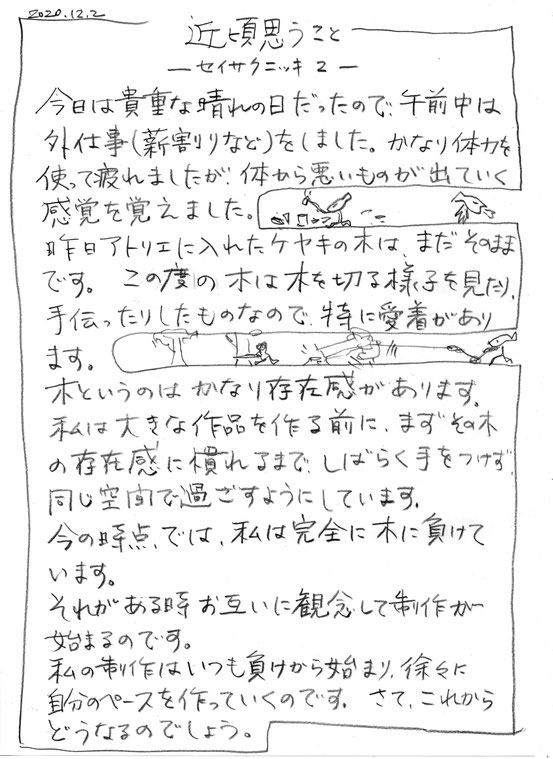 2020.12.2
近頃思うこと
― セイサクニッキ 2 ―
今日は貴重な晴れの日だったので、午前中は
外仕事(薪割りなど)をしました。かなり体力を
使って疲れましたが、体から悪いものが出ていく
感覚を覚えました。
昨日アトリエに入れたケヤキの木は、まだそのまま
です。この度の木は木を切る様子を見たり、
手伝ったりしたものなので、特に愛着があり
ます。
木というのはかなり存在感があります。
私は大きな作品を作る前に、まずその木
の存在感に慣れるまで、しばらく手をつけず、
同じ空間で過ごすようにしています。
今の時点では、私は完全に木に負けて
います。
それがある時お互いに観念して制作が
始まるのです。
私の制作はいつも負けから始まり、徐々に
自分のペースを作っていくのです。さて、これから
どうなるのでしょう。